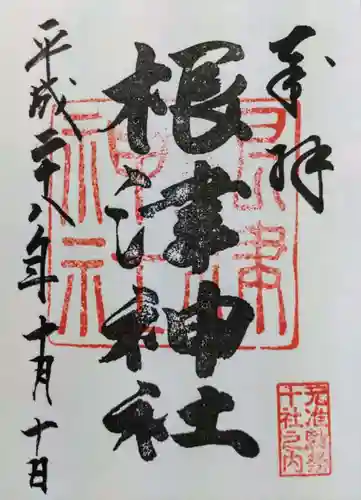 奉拝
根津神社
平成二十八年十月十日
根津神社
元准勅祭
十社之内